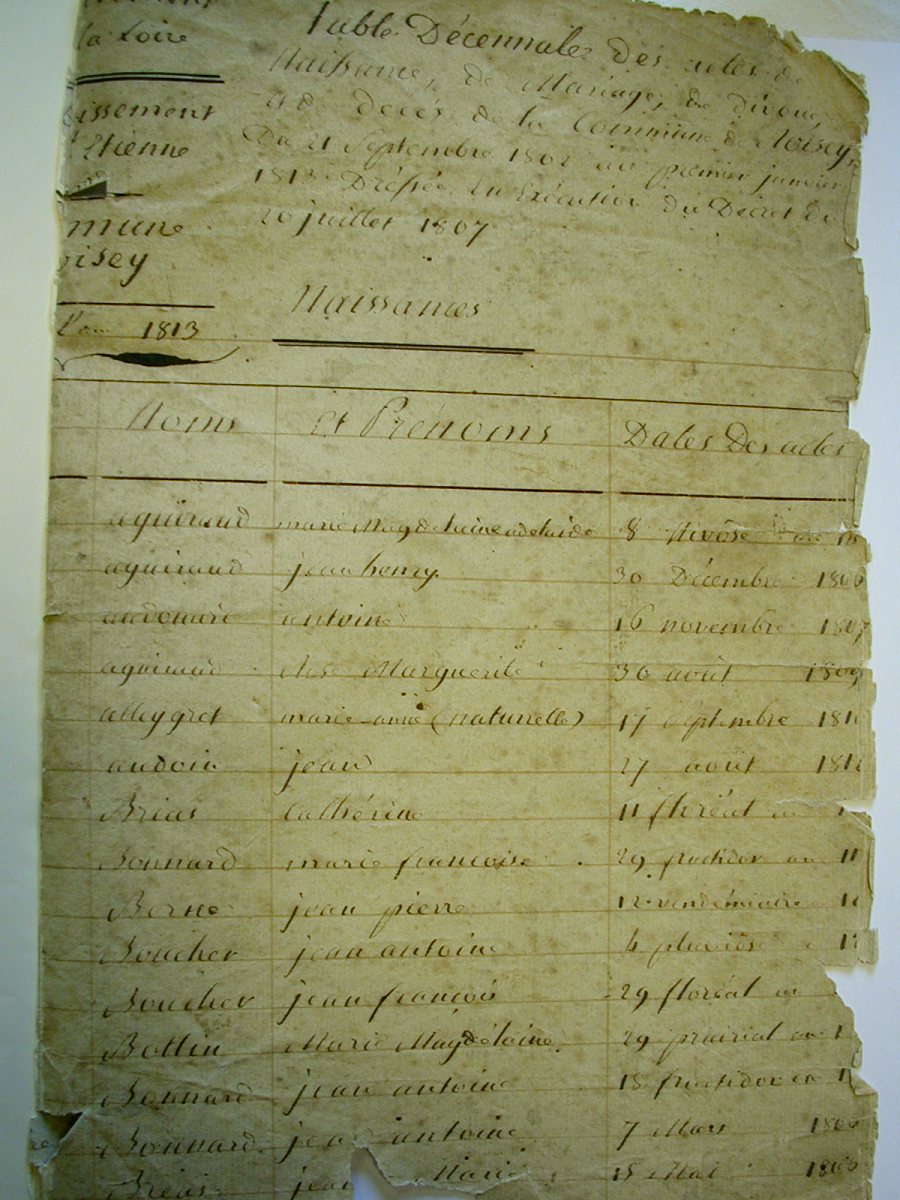 la Loire
issement
Etienne
mune
oisey
L'an 1813
Table Décennale Des actes de
Naissance, de Mariage, de Divorce,
et de decès de la Commune de Noisey,
Du 21 Septembre 1802 au premier janvier
1813 Dréssée En Exécution du Décret du
20 juillet 1807
Naissances
Noms et Prénoms Dates Des actes
aguiraud marie Magdelaine adelaide 8 Nivôse an
aguiraud jean henry 30 Décembre 1806
antoine 16 novembre 1807
aguiraud Rose Marguerite 30 août 1809
alleygret marie anne (naturelle) 17 Septembre 181
audoin jean 27 août 1812
Brias Cathérine 11 floréal an
Bonnard marie françoise 29 fructidor an 11
Berne jean pierre 12 vendémiaire 1
Boucher jean antoine 4 pluviôse 1
Boucher jean françois 29 floréal an
Bottin Marie Magdélaine 29 prairial an
Bonnard jean antoine 18 fructidor an 1
Bonnard jean antoine 7 Mars 180
Brias jean Marie 15 Mai 1806